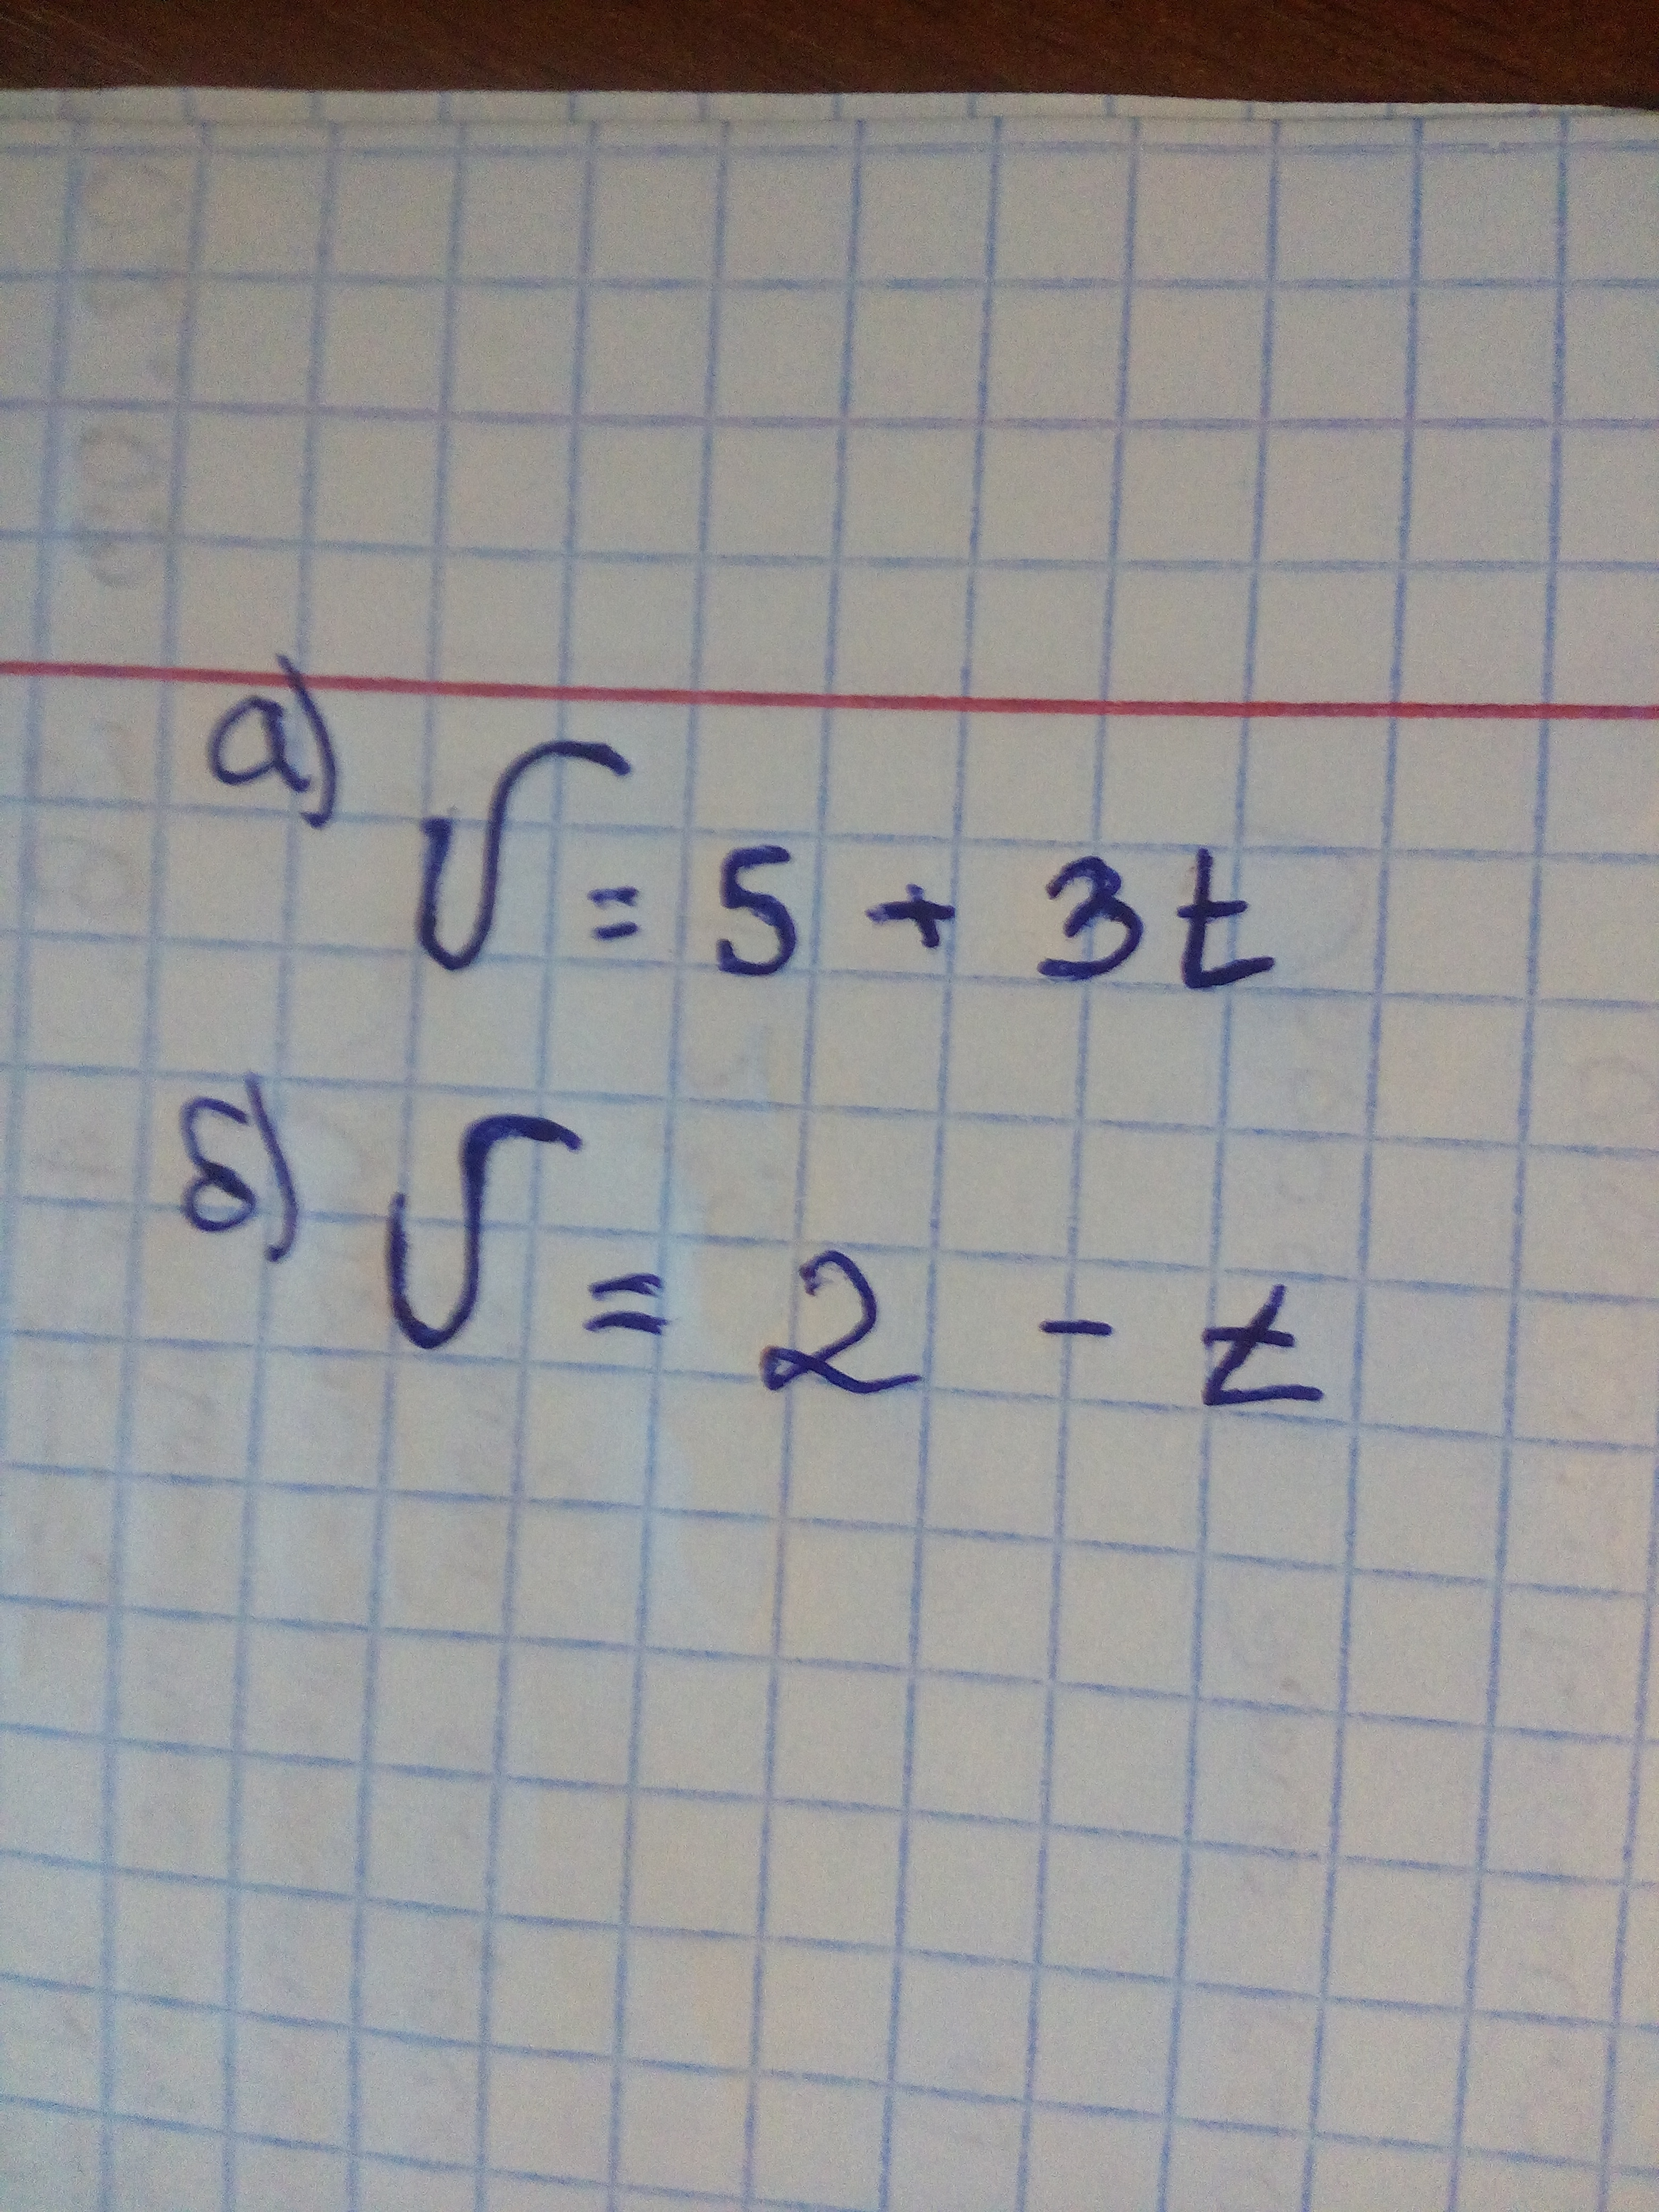 а) υ = 5 + 3t
б) υ = 2 - t